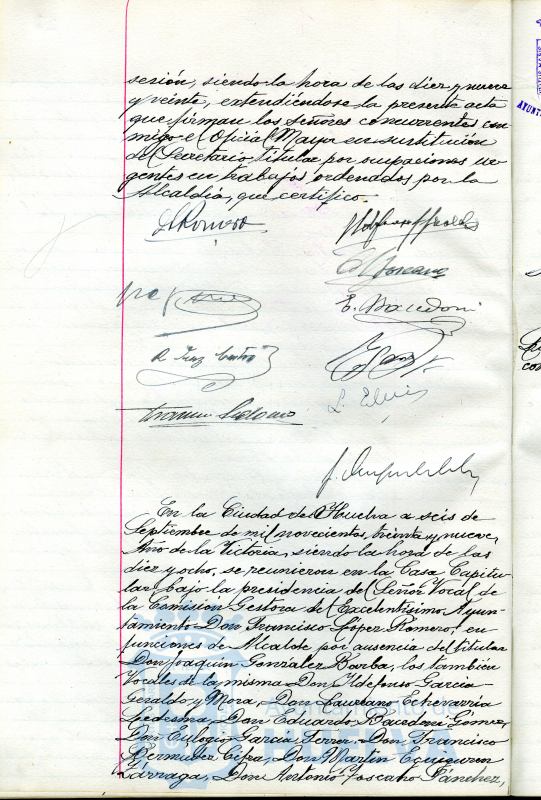 sesión, siendo la hora de las diez y nueve
y veinte, extendiéndose la presente acta
que firman los señores concurrentes con-
migo el Oficial Mayor en sustitución
del Secretario titular por ocupaciones ur-
gentes en trabajos ordenados por la
Alcaldía, que certifico.
F. L. Romero
E. Bacedoni
En la Ciudad de Huelva a seis de
Septiembre de mil novecientos treinta y nueve,
Año de la Victoria, siendo la hora de las
diez y ocho, se reunieron en la Casa Capitu-
lar, bajo la presidencia del Señor Vocal de
la Comisión Gestora del Excelentísimo Ayun-
tamiento Don Francisco López Romero, en
funciones de Alcalde por ausencia del titular
Don Joaquín González Barba, los también
Vocales de la misma Don Ildefonso García-
Geraldo y Mora, Don Laureano Echevarría
Ledesma, Don Eduardo Bacedoni Gómez,
Don Eulogio García Ferror, Don Francisco
Bermudez Cifra, Don Martín Eguiguren
Lárraga, Don Antonio Toscano Sánchez,
Ayuntamiento de
HUELVA